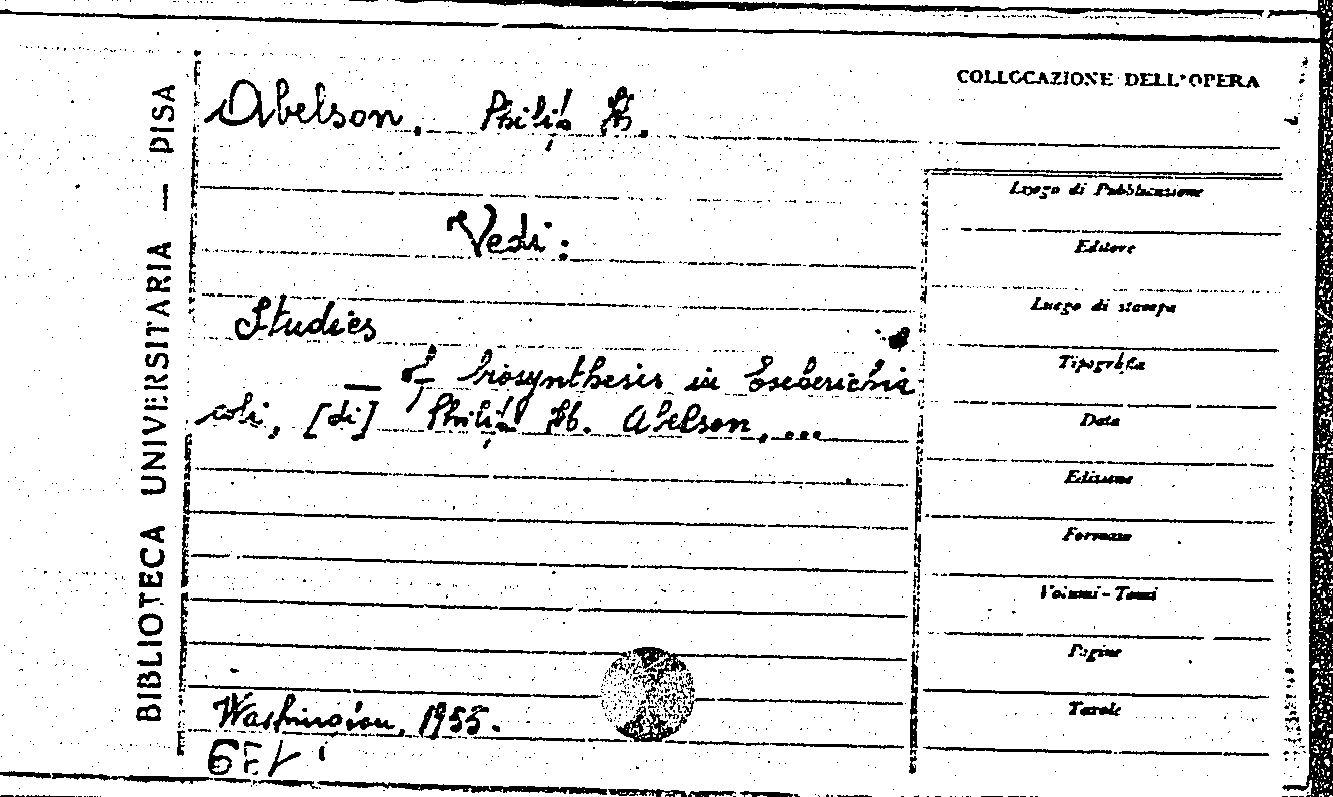 BIBLIOTECA UNIVERSITARIA — PISA
COLLOCAZIONE DELL'OPERA
Abelson, Philip H.
Vedi:
Studies
— of biosynthesis in Escherichia
coli, [di] Philip H. Abelson, ...
Washington, 1955.
Luogo di Pubblicazione
Editore
Luogo di stampa
Tipografia
Data
Edizione
Formato
Volumi - Tomi
Pagine
Tavole